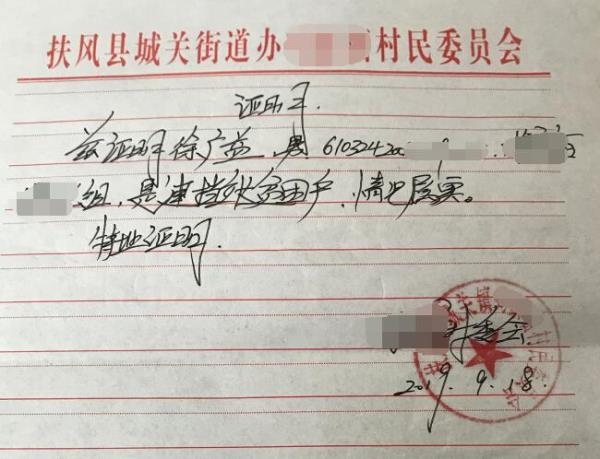 扶风县城关街道办村民委员会
证明
兹证明徐广益 男 6103242
组，是建档立卡贫困户，情况属实。
特此证明
村委会
2019.9.18.
城关镇